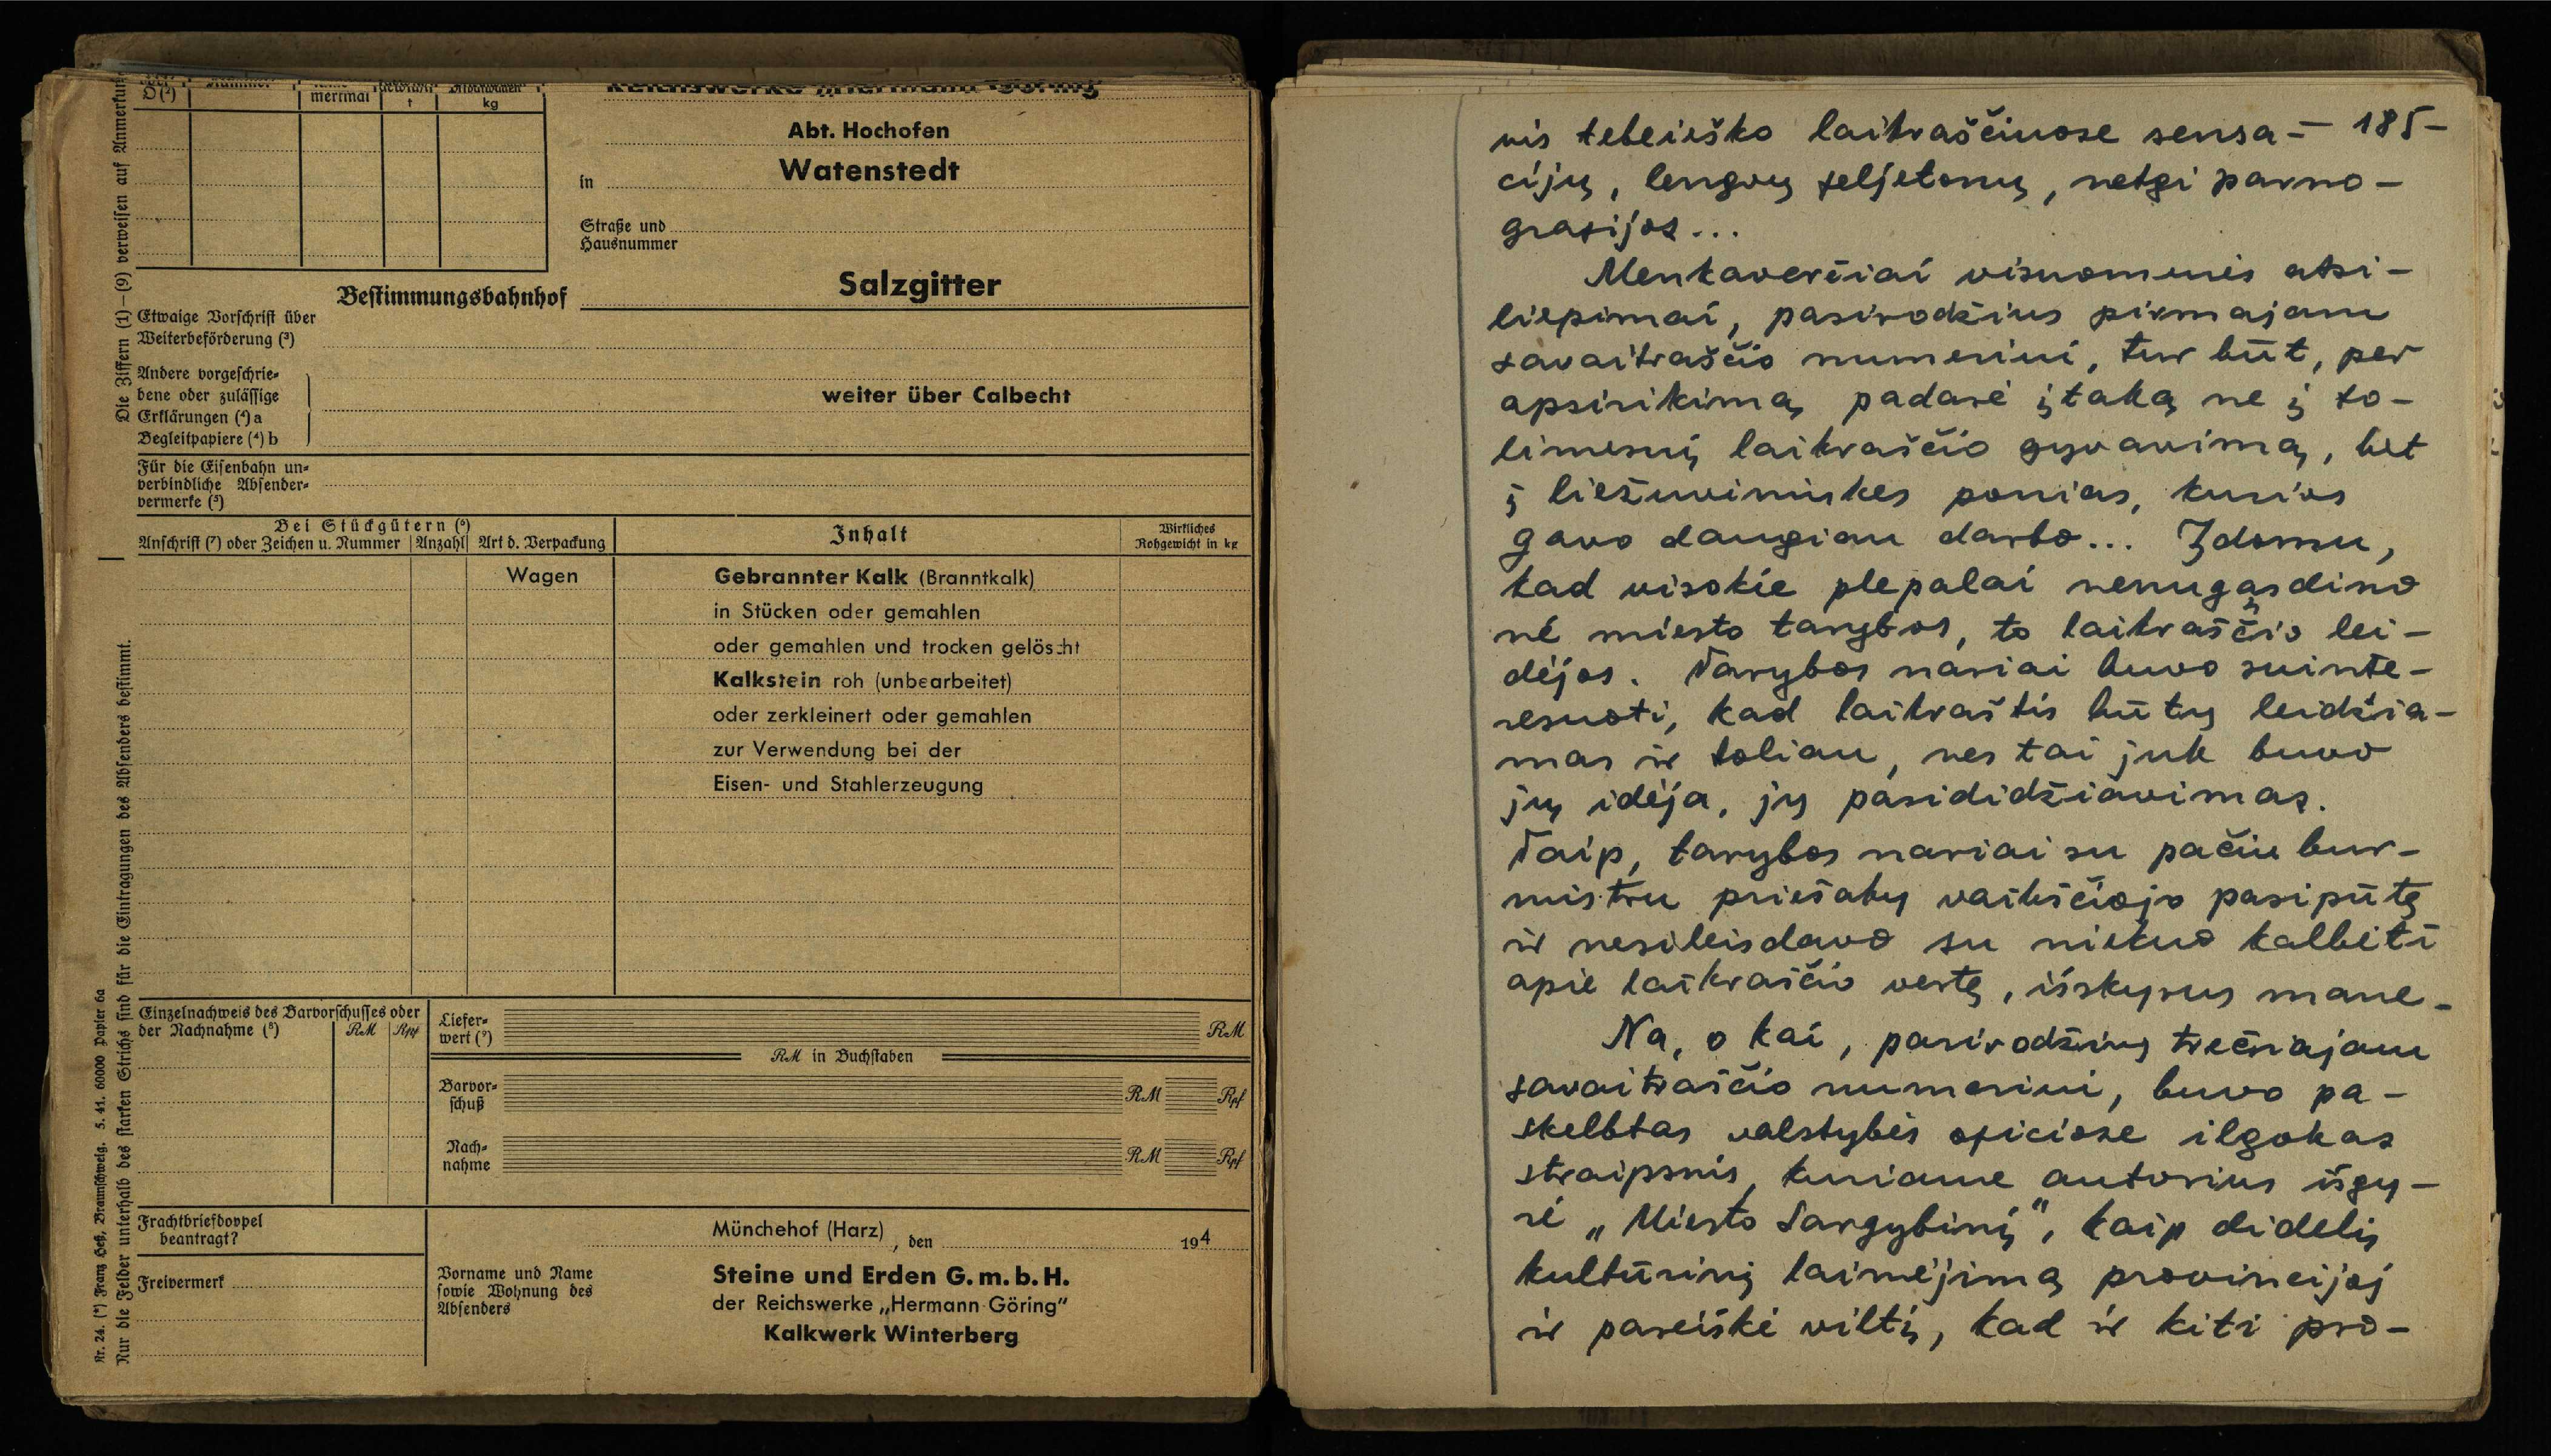 mertmal
t
kg
Abt. Hochofen
in Watenstedt
Straße und
Hausnummer
Bestimmungsbahnhof Salzgitter
Etwaige Vorschrift über
Weiterbeförderung (³)
Andere vorgeschrie=
bene oder zulässige
Erklärungen (⁴) a
Begleitpapiere (⁴) b
weiter über Calbecht
Für die Eisenbahn un=
verbindliche Absender=
vermerke (⁵)
Bei Stückgütern (⁶)
Anschrift (⁷) oder Zeichen u. Nummer
Anzahl
Art d. Verpackung
Inhalt
Wirkliches
Rohgewicht in kg
Wagen
Gebrannter Kalk (Branntkalk)
in Stücken oder gemahlen
oder gemahlen und trocken gelöscht
Kalkstein roh (unbearbeitet)
oder zerkleinert oder gemahlen
zur Verwendung bei der
Eisen- und Stahlerzeugung
Einzelnachweis des Barvorschusses oder
der Nachnahme (⁸) RM Rpf
Liefer=
wert (⁹) RM
RM in Buchstaben
Barvor=
schuß RM Rpf
Nach=
nahme RM Rpf
Frachtbriefdoppel
beantragt?
Freivermerk
Münchehof (Harz), den 194
Vorname und Name
sowie Wohnung des
Absenders
Steine und Erden G. m. b. H.
der Reichswerke „Hermann Göring"
Kalkwerk Winterberg
Die Ziffern (1)–(9) verweisen auf Anmerkun
Nur die Felder unterhalb des starken Strichs sind für die Eintragungen des Absenders bestimmt.
Nr. 24. (*) Franz Heß, Braunschweig. 5. 41. 60000 Papier 6a
- 185 -
vis tebeieško laikraščiuose sensa-
cijų, lengvų feljetonų, netgi porno-
grafijos...
Menkaverčiai visuomenės atsi-
liepimai, pasirodžius pirmajam
savaitraščio numeriui, tur būt, per
apsirikimą padarė įtaką ne į to-
limesnį laikraščio gyvavimą, bet
į liežuvininkes ponias, kurios
gavo daugiau darbo... Įdomu,
kad visokie plepalai nenugąsdino
nė miesto tarybos, to laikraščio lei-
dėjos. Tarybos nariai buvo suinte-
resuoti, kad laikraštis būtų leidžia-
mas ir toliau, nes tai juk buvo
jų idėja, jų pasididžiavimas.
Taip, tarybos nariai su pačiu bur-
mistru priešaky vaikščiojo pasipūtę
ir nesileisdavo su niekuo kalbėti
apie laikraščio vertę, išskyrus mane.
Na, o kai, pasirodžius trečiajam
savaitraščio numeriui, buvo pa-
skelbtas valstybės oficioze ilgokas
straipsnis, kuriame autorius išgy-
rė „Miesto Sargybinį", kaip didelį
kultūrinį laimėjimą provincijoj
ir pareiškė viltį, kad ir kiti pro-